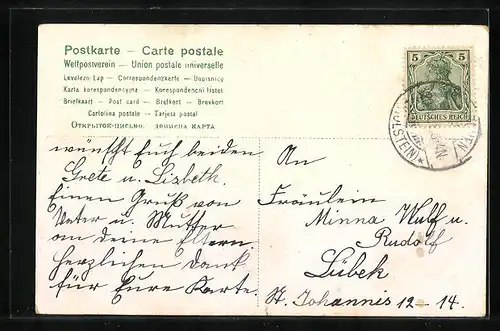 Postkarte – Carte postale
Weltpostverein – Union postale universelle
Levelező-Lap – Correspondenzkarte – Dopisnice
Karta korespondencyjna – Korespondenční lístek
Briefkaart – Post card – Brefkort – Brevkort
Cartolina postale – Tarjeta postal
Открытое письмо. Дописна карта
5 5
DEUTSCHES REICH
(HOLSTEIN) *
wünscht Euch beiden
Grete u. Lisbeth.
Einen Gruß von
Vater u. Mutter
an deine Eltern.
Herzlichen Dank
für Eure Karte.
An
Fräulein
Minna Wulf u.
Rudolf
Lübek
St. Johannis 12 – 14.